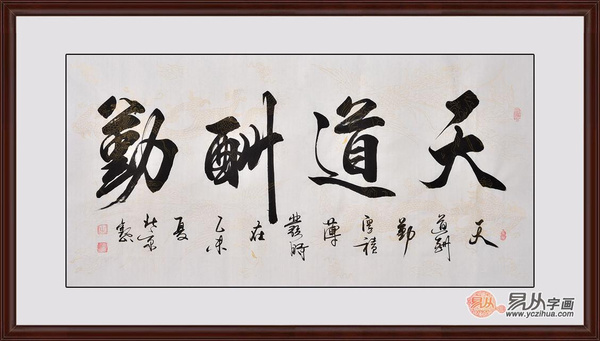 天道酬勤
天
道酬
勤
厚積
薄
發時
在
乙未
夏
北京
易从
易从字画
www.yczihua.com